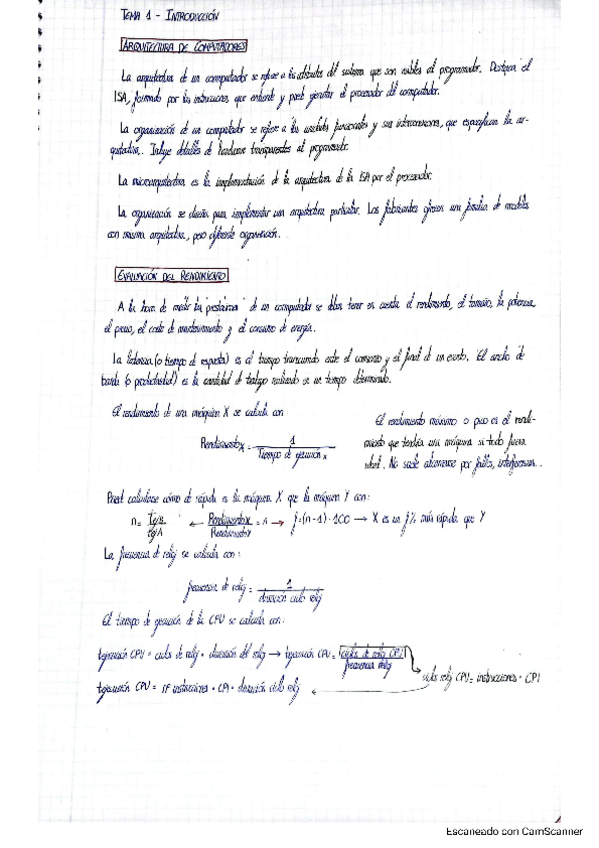 TEMA 1 - INTRODUCCIÓN
ARQUITECTURA DE COMPUTADORES
La arquitectura de un computador se refiere a los atributos del sistema que son visibles al programador. Destaca el
ISA, formado por las instrucciones que entiende y puede ejecutar el procesador del computador.
La organización de un computador se refiere a las unidades funcionales y sus interconexiones, que especifican la ar-
quitectura. Incluye detalles de hardware transparentes al programador.
La microarquitectura es la implementación de la arquitectura de la ISA por el procesador.
La organización se diseña para implementar una arquitectura particular. Los fabricantes ofrecen una familia de modelos
con misma arquitectura, pero diferente organización.
EVALUACIÓN DEL RENDIMIENTO
A la hora de medir las "prestaciones" de un computador se deben tener en cuenta el rendimiento, el tamaño, la potencia,
el precio, el coste de mantenimiento y el consumo de energía.
La latencia (o tiempo de respuesta) es el tiempo transcurrido entre el comienzo y el final de un evento. El ancho de
banda (o productividad) es la cantidad de trabajo realizado en un tiempo determinado.
El rendimiento de una máquina X se calcula con
Rendimiento x = 1 / Tiempo de ejecución x
El rendimiento máximo o pico es el rendi-
miento que tendría una máquina si todo fuera
ideal. No suele alcanzarse por fallos, interferencias...
Puede calcularse cómo de rápida es la máquina X que la máquina Y con:
n = / ← Rendimiento X / Rendimiento Y = n → f=(n-1)·100 → X es un f% más rápida que Y
La frecuencia de reloj se calcula con:
frecuencia de reloj = 1 / duración ciclo reloj
El tiempo de ejecución de la CPU se calcula con:
tejecución CPU = ciclos de reloj · duración del reloj → tejecución CPU = ciclos de reloj CPU / frecuencia reloj
ciclos reloj CPU = instrucciones · CPI
tejecución CPU = nº instrucciones · CPI · duración ciclo reloj
Escaneado con CamScanner